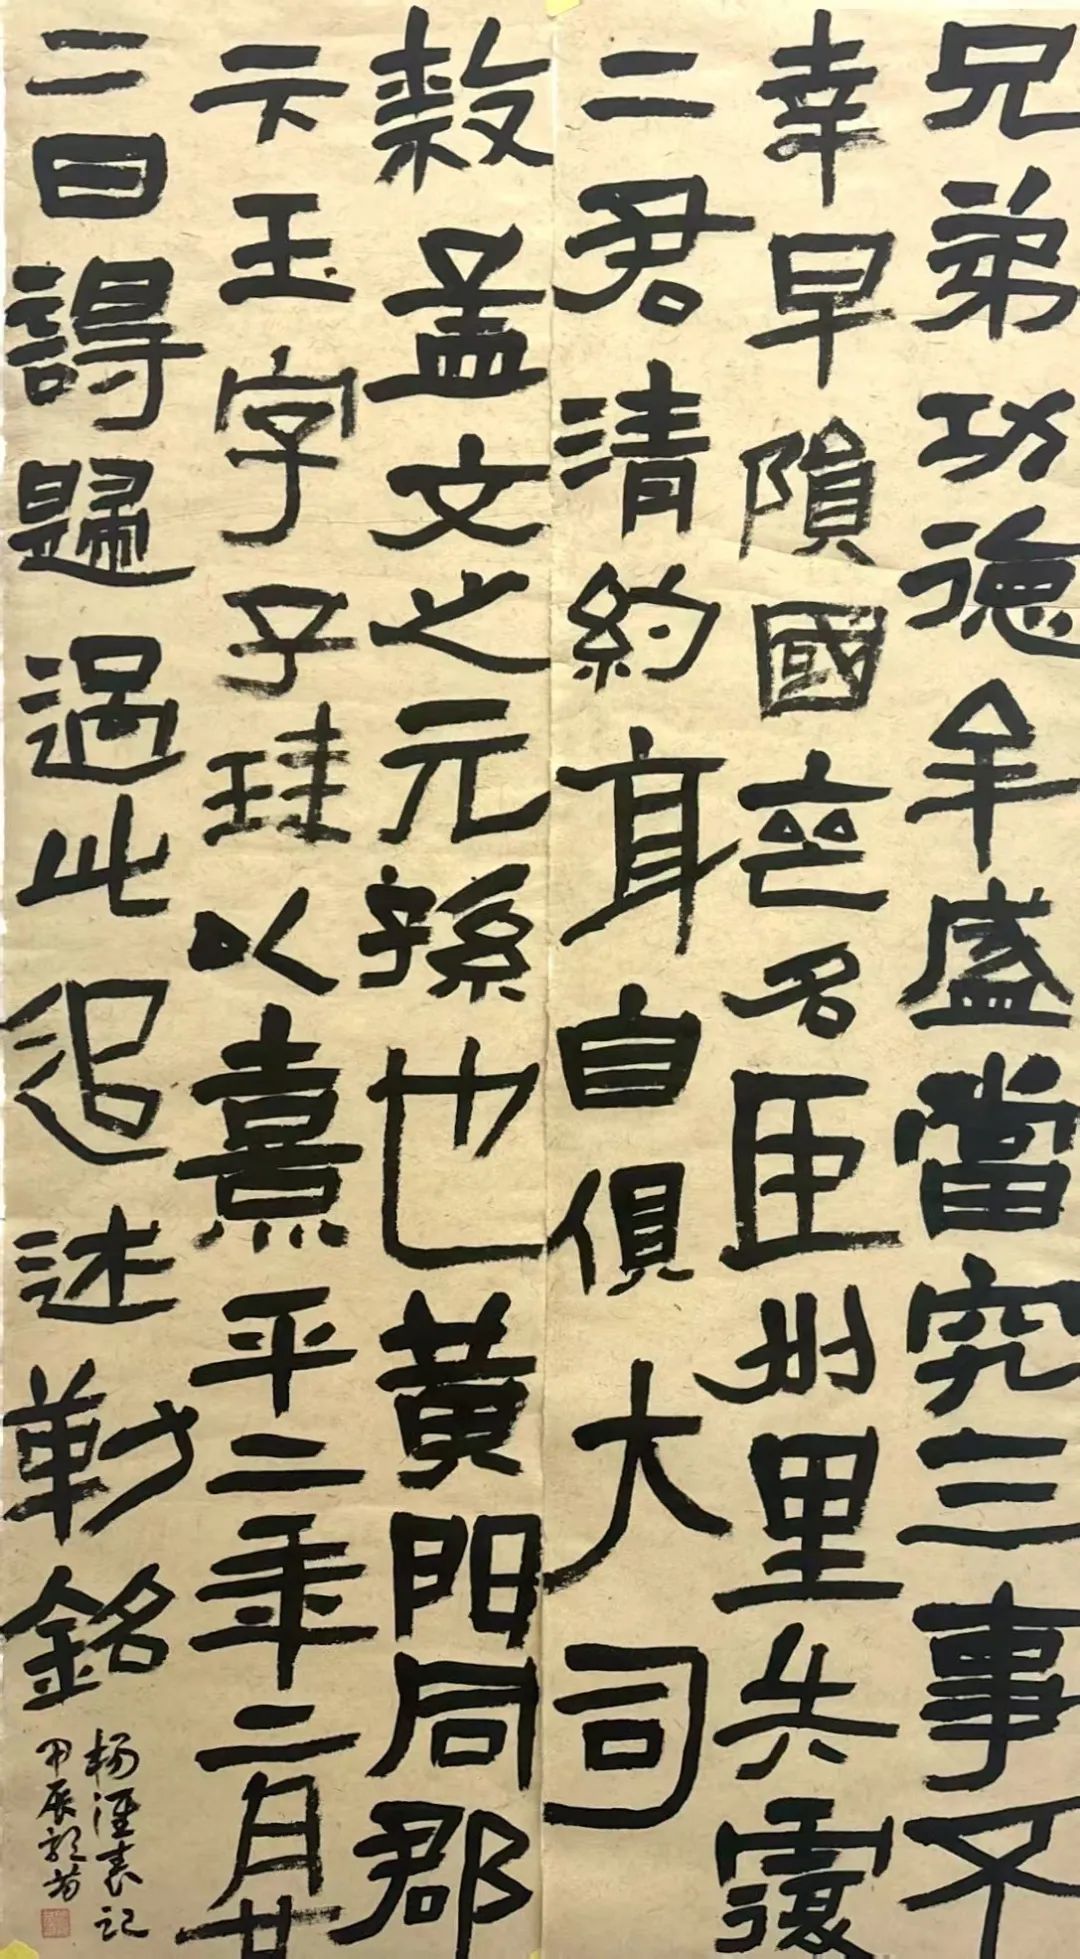 兄弟功德牟盛當究三事不
幸早隕國喪名臣州里失覆
二君清約身自俱大司
隸孟文之元孫也黃門同郡
卞玉字子珪以熹平二年二月廿
二日謁歸過此追述勒銘
杨淮表记
甲辰